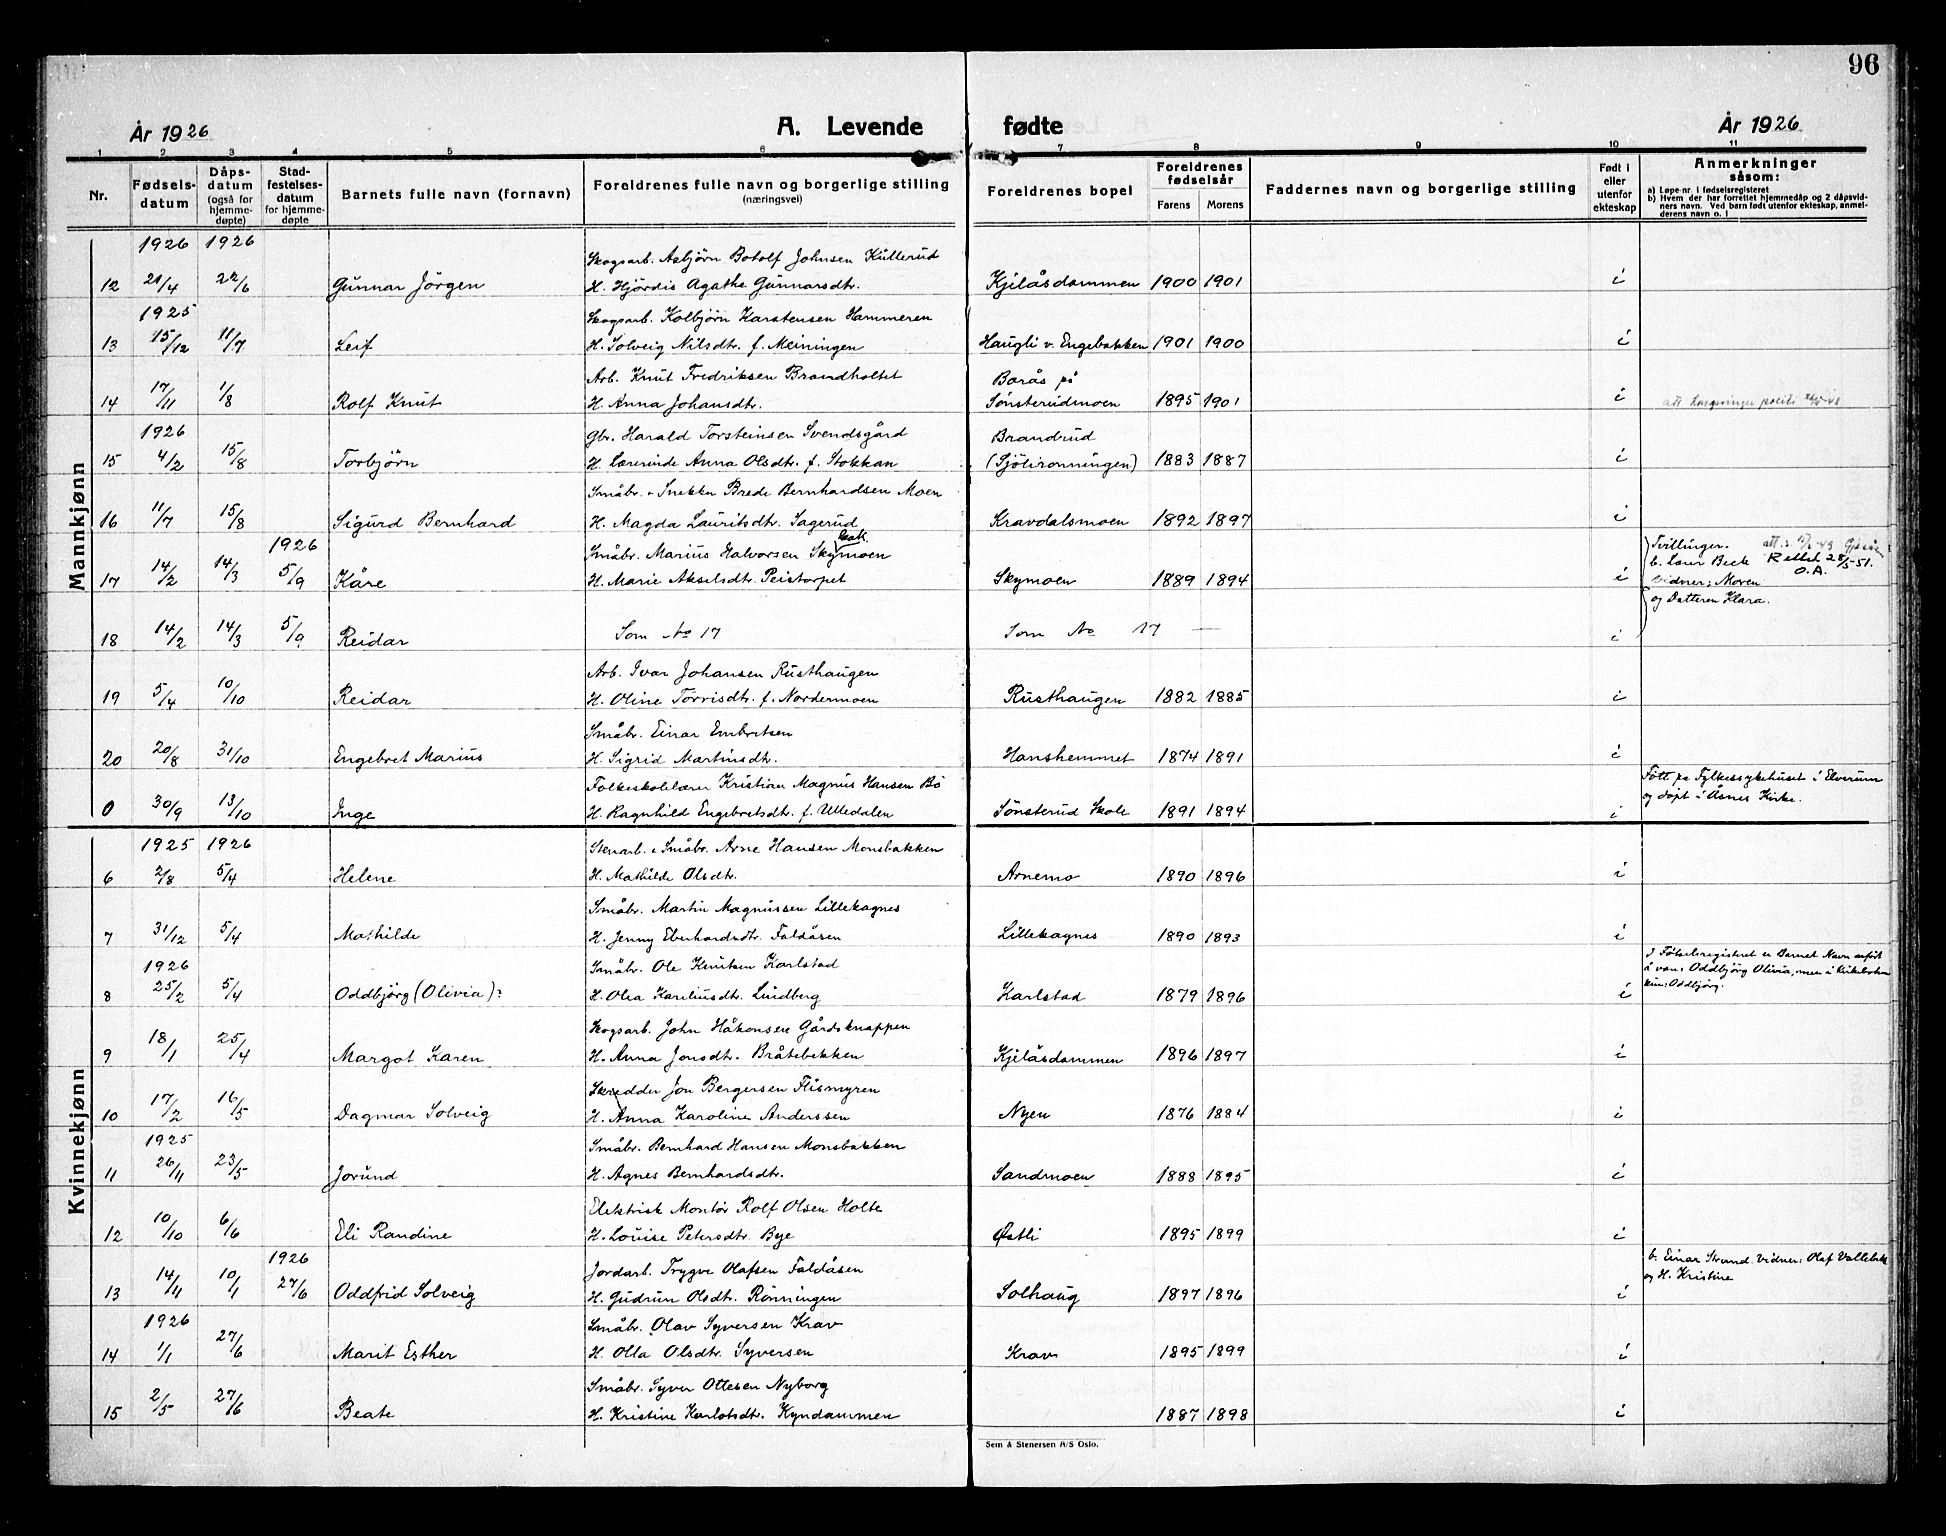 96
År 1926 A. Levende fødte År 1926
1 2 3 4 5 6 7 8 9 10 11
Nr. Fødselsdatum Dåpsdatum (også for hjemmedøpte) Stadfestelsesdatum for hjemmedøpte Barnets fulle navn (fornavn) Foreldrenes fulle navn og borgerlige stilling (næringsvei) Foreldrenes bopel Foreldrenes fødselsår Farens Morens Faddernes navn og borgerlige stilling Født i eller utenfor ekteskap Anmerkninger såsom:
a) Løpe-nr. i fødselsregisteret
b) Hvem der har forrettet hjemmedåp og 2 dåpsvidners navn. Ved barn født utenfor ekteskap, anmelderens navn o. l
Mannkjønn
1926 1926 Skogsarb. Asbjörn Botolf Johnsen Kullerud
12 21/4 22/6 Gunnar Jörgen H. Hjördis Agathe Gunnarsdtr. Kjilåsdammen 1900 1901 i
1925 Skogsarb. Kolbjörn Karstensen Hammeren
13 15/12 11/7 Leif H. Solveig Nilsdtr. f. Meiningen Haugli v. Engebakken 1901 1900 i
Arb. Knut Fredriksen Brandholtet Borås på
14 17/11 1/8 Rolf Knut H. Anna Johansdtr. Sönsterudmoen 1895 1901 i
1926 Gbr. Harald Torsteinsen Svendsgård Brandrud
15 4/2 15/8 Torbjörn H. Lærerinde Anna Olsdtr. f. Stokkan (Sjölironningen) 1883 1887 i
Småbr. & Snekker Brede Bernhardsen Moen
16 11/7 15/8 Sigurd Bernhard H. Magda Lauritsdtr. Sagerud Kravdalsmoen 1892 1897 i
1926 Småbr. Marius Halvorsen Skymoen Tvillinger.
17 14/2 14/3 5/9 Kåre H. Marie Akselsdtr. Peistorpet Skymoen 1889 1894 i b. Lærer Beck Rettet 28/5-51. O.A.
vidner: Moren
og Datteren Klara.
18 14/2 14/3 5/9 Reidar Som No 17 Som No 17 — i
Arb. Ivar Johansen Rusthaugen
19 5/4 10/10 Reidar H. Oline Torrisdtr. f. Nordermoen Rusthaugen 1882 1885 i
Småbr. Einar Embretsen
20 20/8 31/10 Engebret Marius H. Sigrid Martinsdtr. Hanshemmet 1874 1891 i
Folkeskolelærer Kristian Magnus Hansen Bö Fött på Fylkessykehuset i Elverum
0 30/9 13/10 Inge H. Ragnhild Engebretsdtr. f. Ulledalen Sönsterud Skole 1891 1894 i og döpt i Åsnes Kirke.
Kvinnekjønn
1925 1926 Stenarb. & Småbr. Arne Hansen Monsbakken
6 2/8 5/4 Helene H. Mathilde Olsdtr. Arnemo 1890 1896 i
Småbr. Martin Magnussen Lillekagnes
7 31/12 5/4 Mathilde H. Jenny Eberhardsdtr. Faldåsen Lillekagnes 1890 1893 i
1926 Småbr. Ole Knutsen Karlstad I Fötselsregistret er Barnet Navn anfört
8 25/2 5/4 Oddbjörg (Olivia)? H. Olea Kareliusdtr. Lindberg Karlstad 1879 1896 i å være Oddbjörg Olivia, men i kirkeboken
kun: Oddbjörg.
Skogsarb. John Håkonsen Gårdsknappen
9 18/1 25/4 Margot Karen H. Anna Jonsdtr. Bråtebekken Kjilåsdammen 1896 1897 i
Skredder Jon Bergersen Flismyren
10 17/2 16/5 Dagmar Solveig H. Anna Karoline Anderssen Nyen 1876 1884 i
1925 Småbr. Bernhard Hansen Monsbakken
11 26/11 23/5 Jorund H. Agnes Bernhardsdtr. Sandmoen 1888 1895 i
Elektrisk Montör Rolf Olsen Holte
12 10/10 6/6 Eli Randine H. Louise Petersdtr. Bye Østli 1895 1899 i
1926 Jordarb. Trygve Olafsen Faldåsen b. Einar Strand. Vidner: Olaf Vallebekk
13 14/11 10/1 27/6 Oddfrid Solveig H. Gudrun Olsdtr. Rönningen Solhaug 1897 1896 i og H. Kristine
1926 Småbr. Olav Syversen Krav
14 1/1 27/6 Marit Esther H. Olla Olsdtr. Syversen Krav 1895 1899 i
Småbr. Syver Ottesen Nyborg
15 2/5 27/6 Beate H. Kristine Karlotsdtr. Kyndammen 1887 1898 i
Sem & Stenersen A/S Oslo.